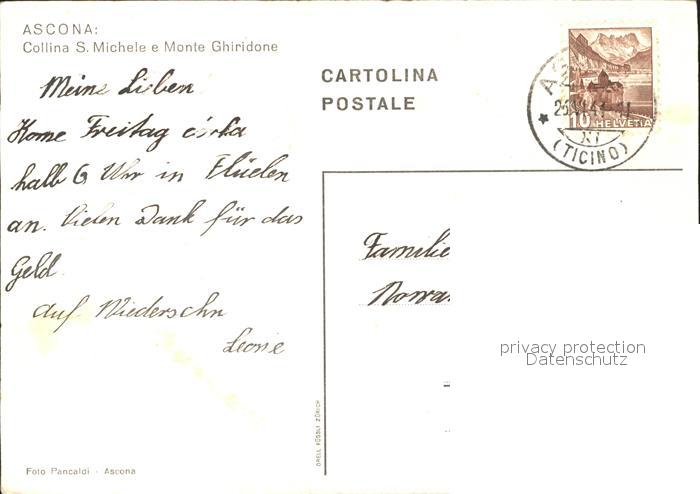 ASCONA:
Collina S. Michele e Monte Ghiridone
CARTOLINA
POSTALE
10 HELVETIA
XI
(TICINO)
Meine Lieben
Kome Freitag cirka
halb 6 Uhr in Flüelen
an. Vielen Dank für das
Geld.
Auf Wiedersehn
Leonie
Familie
privacy protection
Datenschutz
ORELL FÜSSLI ZÜRICH
Foto Pancaldi - Ascona